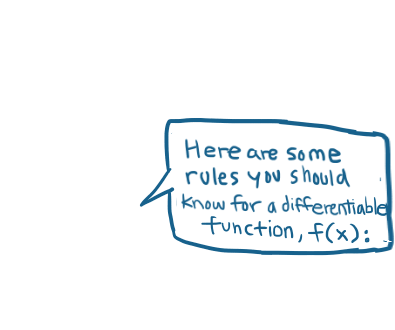 Here are some
rules you should
know for a differentiable
function, f(x):